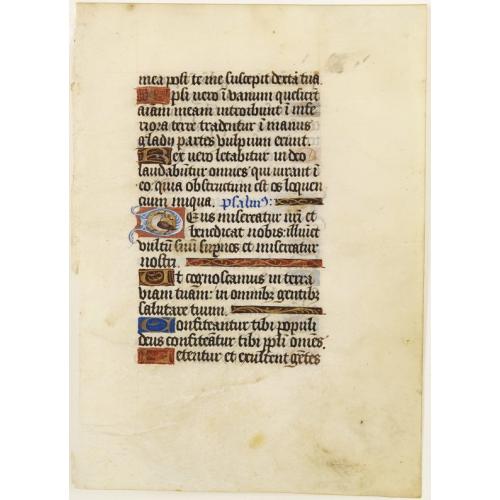 mea post te me suscepit dextā tua
Ipsi vero ī vanum quesierūt
aīam meam introibunt ī infe
riora terre tradentur ī manus
gladij partes vulpium erunt.
Rex vero letabitur in deo
laudabūtur omnes qui iurant ī
eo quia obstructum est os loquen
cium iniqua. psalmꝰ:
Deus misereatur nr̄i et
benedicat nobis: illuīet
vultū suū sup nos et misereatur
nostri.
Ut cognoscamus in terra
viam tuam: in omnibꝫ gentibꝫ
salutare tuum.
Confiteantur tibi populi
deus confiteātur tibi ppl̄i omēs.
Letentur et exultent gētes